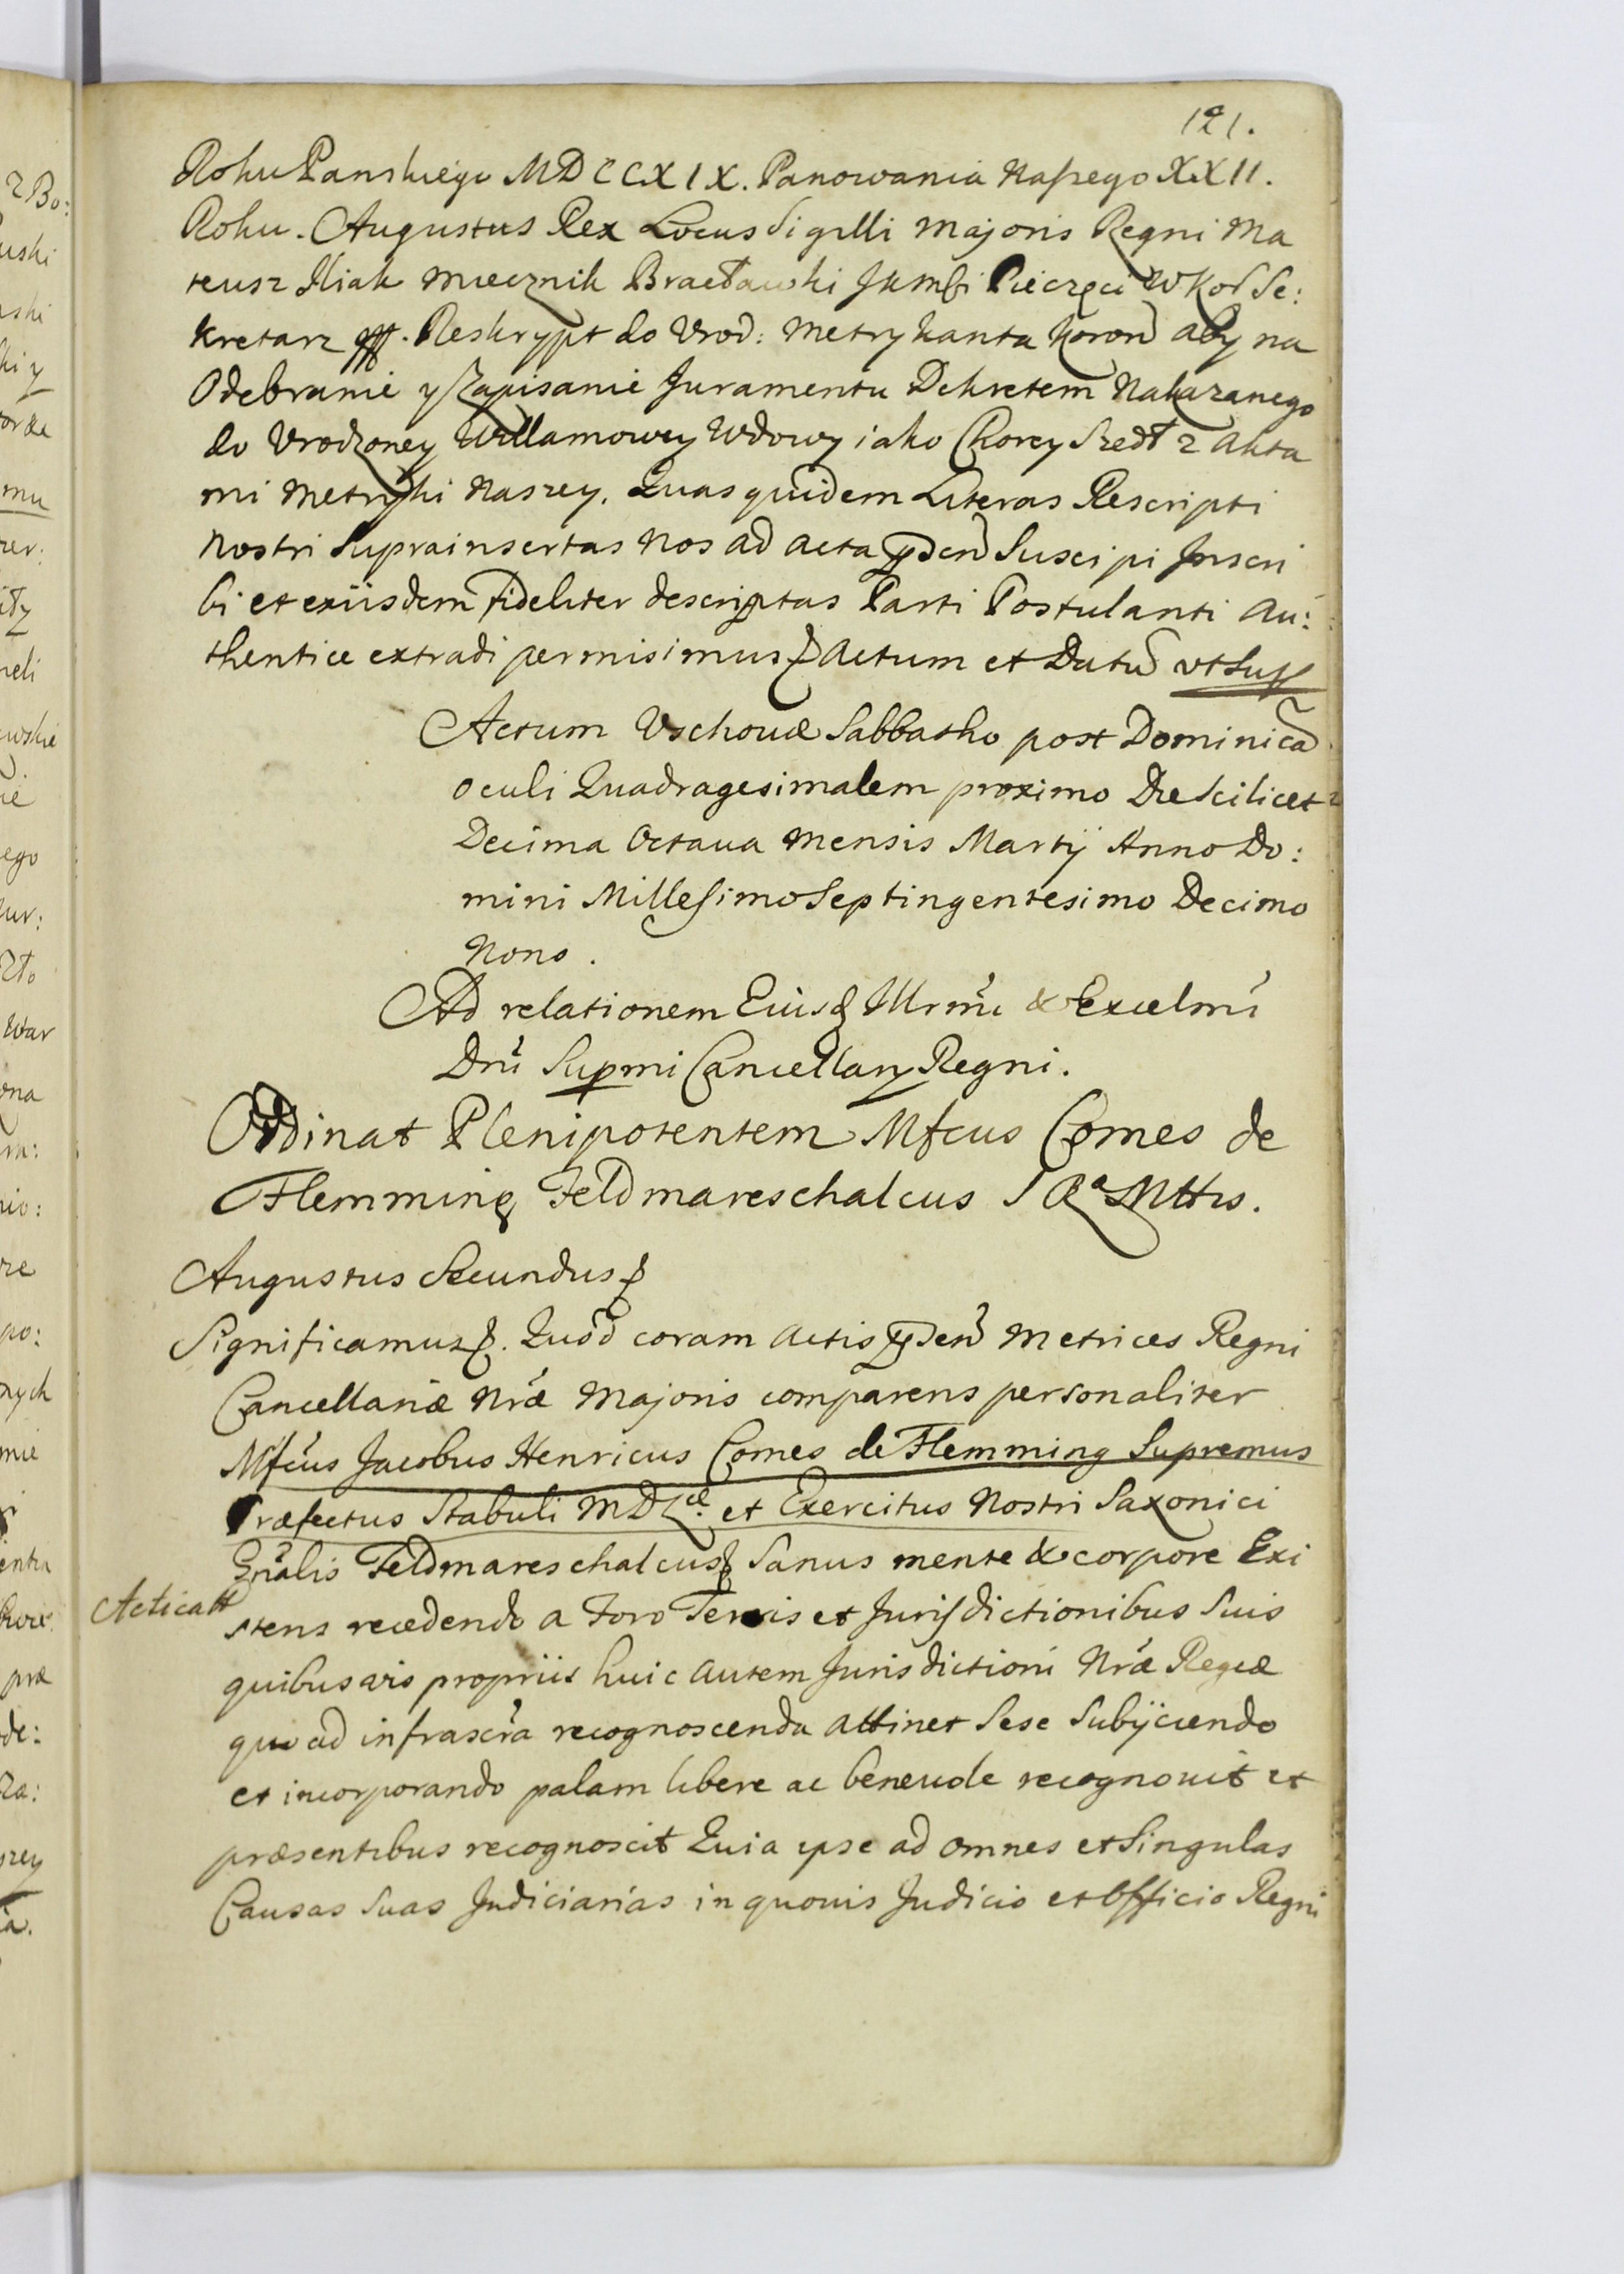 121.
Roku Panskiego MDCCXIX. Panowania Naszego XXII.
Roku. Augustus Rex Locus Sigilli Majoris Regni Ma
teusz Iliak Miecznik Bracławski JKMsci Pieczęci W Kor Se:
kretarz mpp. Reskrypt do Urod: Metrykanta Koron aby na
Odebranie y Zapisanie Juramentu Dekretem Nakazanego
do Vrodzoney Willamowey Wdowy iako Chorey Szedł z Akta
mi Metryki Naszey. Quas quidem Literas Rescripti
Nostri Suprainsertas Nos ad Acta psen Suscipi Inscri
bi et exiisdem fideliter descriptas Parti Postulanti Au:
thentice extradi permisimus Actum et Datu vt Sup
Actum Vschouæ Sabbatho post Dominica
oculi Quadragesimalem proximo Die Scilicet
Decima Octaua Mensis Martij Anno Do:
mini Millesimo Septingentesimo Decimo
Nono.
Ad relationem Eiusd Illrmi & Excelmi
Dni Supmi Cancellarij Regni.
Ordinat Plenipotentem Mfcus Comes de
Flemming Feldmareschalcus S Ra Mttis.
Augustus Secundus
Significamus. Quod coram Actis psen Metrices Regni
Cancellariæ Nræ Majoris comparens personaliter
Mfcus Jacobus Henricus Comes de Flemming Supremus
Præfectus Stabuli MDLæ. et Exercitus Nostri Saxonici
Gnalis Feldmareschalcus Sanus mente & corpore Exi
Acticatt
stens recedendo a Foro Terris et Jurisdictionibus Suis
quibusvis propriis huic autem Jurisdictioni Nræ Regiæ
quo ad infrascra recognoscenda attinet Sese Subijciendo
et incorporando palam libere ac beneuole recognouit et
præsentibus recognoscit Quia ipse ad omnes et Singulas
Causas Suas Judiciarias in quouis Judicio et Officio Regni